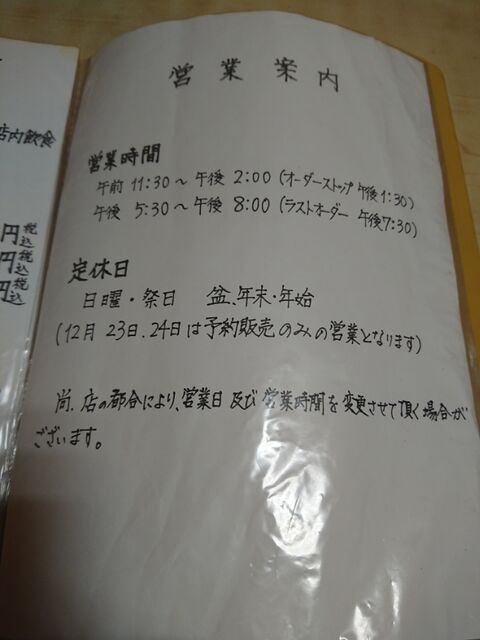 営業案内
営業時間
午前 11:30〜午後 2:00 (オーダーストップ 午後1:30)
午後 5:30〜午後 8:00 (ラストオーダー 午後7:30)
定休日
日曜・祭日 盆、年末・年始
(12月 23日.24日は予約販売のみの営業となります)
尚、店の都合により、営業日及び営業時間を変更させて頂く場合が
ございます。
店内飲食
円税込
円税込
円税込